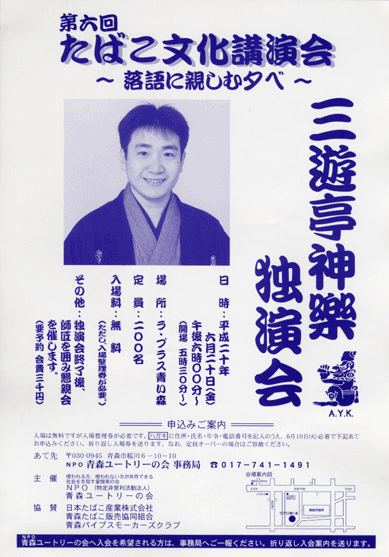 第六回
たばこ文化講演会
～ 落語に親しむ夕べ ～
三遊亭神樂
独演会
A.Y.K.
日　時：平成二十年
六月二十日(金)
午後六時〇〇分～
(開場　五時三〇分～)
場　所：ラ・プラス青い森
定　員：二〇〇名
入場料：無　料
(ただし入場整理券が必要。)
その他：独演会終了後、
師匠を囲み懇親会
を催します。
(要予約 会費三千円)
申込みご案内
入場は無料ですが入場整理券が必要です。ハガキに住所・氏名・年令・電話番号を記入のうえ、6月10日(火)必着で下記あて
お申込みください。折り返し入場券を送ります。なお、定員オーバーの場合はご容赦ください。
あて先　〒030-0945　青森市桜川6－10－10
NPO 青森ユートリーの会 事務局　☎017-741-1491
主　催
NPO (特定非営利活動法人)
青森ユートリーの会
協　賛　日本たばこ産業株式会社
青森たばこ販売協同組合
青森パイプスモーカーズクラブ
会場案内図
NPO
青森ユートリーの会へ入会を希望される方は、事務局へご一報ください。折り返し入会案内を送ります。